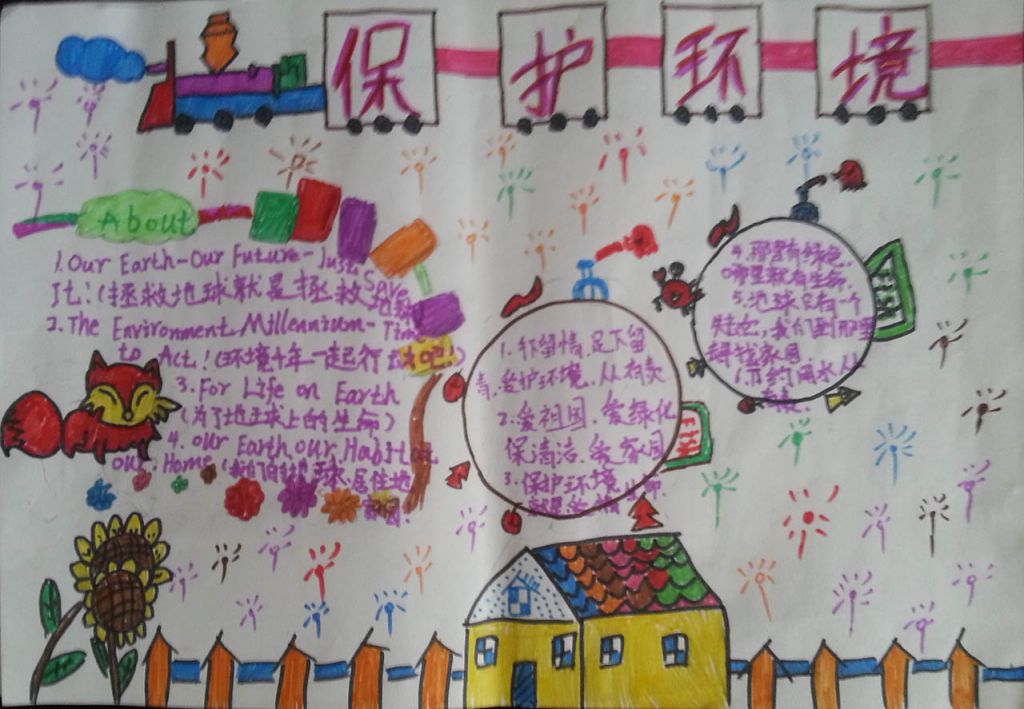 保护环境
About
1. Our Earth-Our Future-Just Save
It! (拯救地球就是拯救
2. The Environment Millennium-Time
to Act! (环境千年一起行动吧!)
3. For Life on Earth
(为了地球上的生命)
4. our Earth, our Habitat
our Home (我们的地球,居住地
家园.
1. 手留情,足下留
青,爱护环境,从有
2. 爱祖国,爱绿化
保清洁,爱家园
3. 保护环境
4. 那里有绿色,
哪里就有生命.
5. 地球只有一个
我们到那里
寻找家园
6. 节约用水从